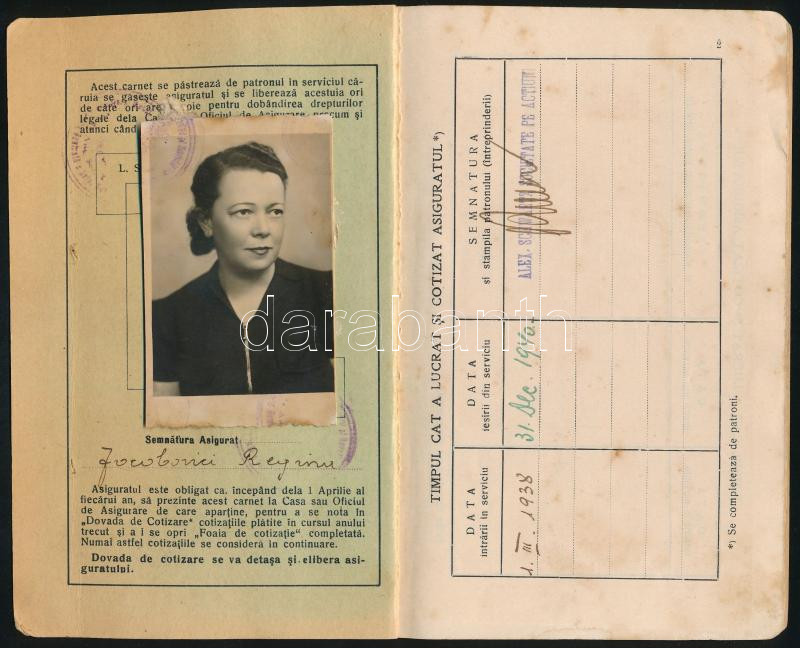 Acest carnet se păstrează de patronul în serviciul că-
ruia se găsește asiguratul și se liberează acestuia ori
de câte ori are voie pentru dobândirea drepturilor
legale dela Ca Oficiul de Asigurare precum și
atunci când
L. S
darabanth
Semnătura Asigurat
Jocobovici Regina
Asiguratul este obligat ca, începând dela 1 Aprilie al
fiecărui an, să prezinte acest carnet la Casa sau Oficiul
de Asigurare de care aparține, pentru a se nota în
„Dovada de Cotizare" cotizațiile plătite în cursul anului
trecut și a i se opri „Foaia de cotizație" completată.
Numai astfel cotizațiile se consideră în continuare.
Dovada de cotizare se va detașa și elibera asi-
guratului.
TIMPUL CAT A LUCRAT ȘI COTIZAT ASIGURATUL*)
DATA
intrării în serviciu
DATA
ieșirii din serviciu
SEMNATURA
și stampila patronului (întreprinderii)
1. III. 1938
31. Dec. 1940.
ALEX. PE ACȚIUNI
*) Se completează de patroni.